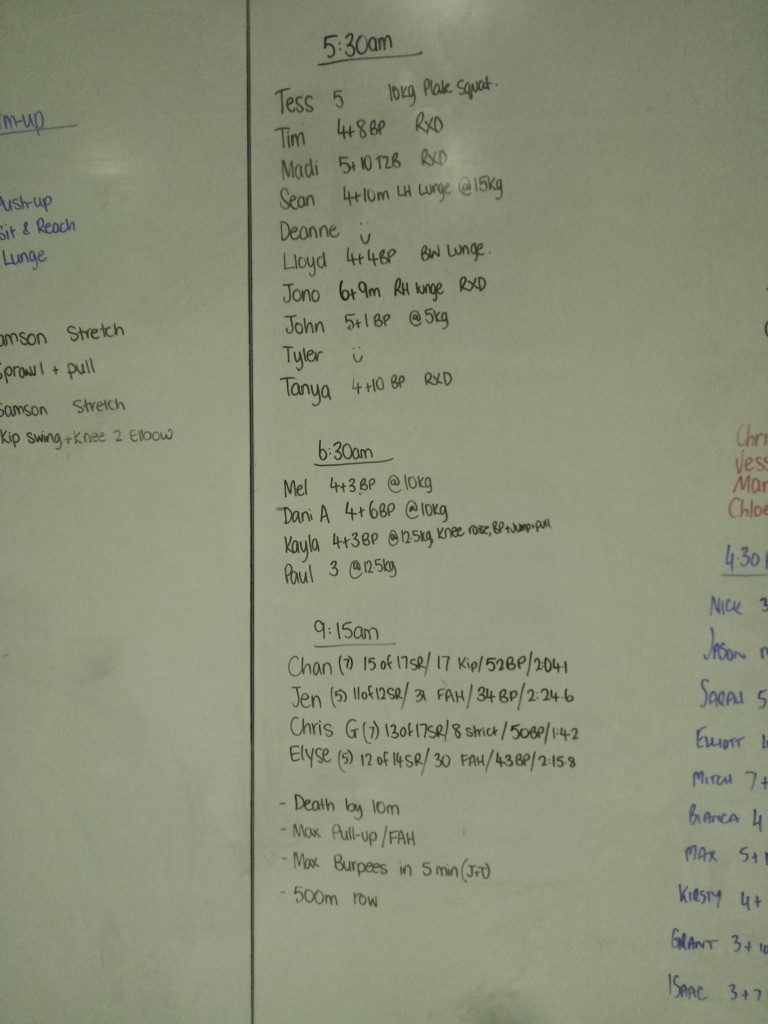 m-up
Push-up
Sit & Reach
Lunge
amson Stretch
Sprawl + pull
Samson Stretch
Kip swing + Knee 2 Elbow
5:30am
Tess 5 10kg Plate Squat.
Tim 4+8BP RXD
Madi 5+10T2B RXD
Sean 4+10m LH Lunge @15kg
Deanne
Lloyd 4+4BP BW Lunge.
Jono 6+9m RH lunge RXD
John 5+1BP @5kg
Tyler
Tanya 4+10 BP RXD
6:30am
Mel 4+3BP @10kg
Dani A 4+6BP @10kg
Kayla 4+3BP @12.5kg, Knee raise, BP+Jump+pull
Paul 3 @12.5kg
9:15am
Chan (7) 15 of 17SR/ 17 Kip/52BP/2:04.1
Jen (5) 11of12SR/ 31 FAH/34BP/2:24.6
Chris G (7) 13of17SR/8 strict/50BP/1:42
Elyse (5) 12 of 14SR/ 30 FAH/43BP/2:15.8
- Death by 10m
- Max Pull-up/FAH
- Max Burpees in 5min
- 500m row
Chri
Jess
Mar
Chloe
4:30
NICK 3
JASON
SARAH 5
ELLIOTT
MITCH 7+
BIANCA 4
MAX 5+
KIRSTY 4+
GRANT 3+10
ISAAC 3+7